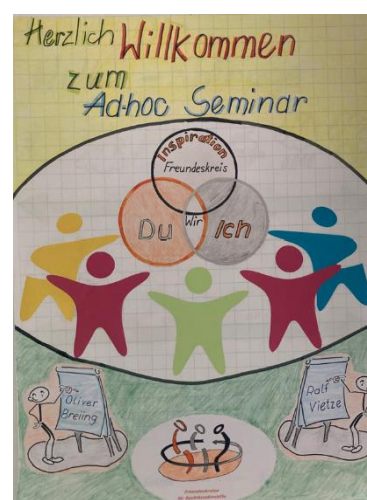 Herzlich Willkommen
zum
Ad-hoc Seminar
Inspiration
Freundeskreis
Du Wir Ich
Oliver
Breiing
Ralf
Vietze
Freundeskreise